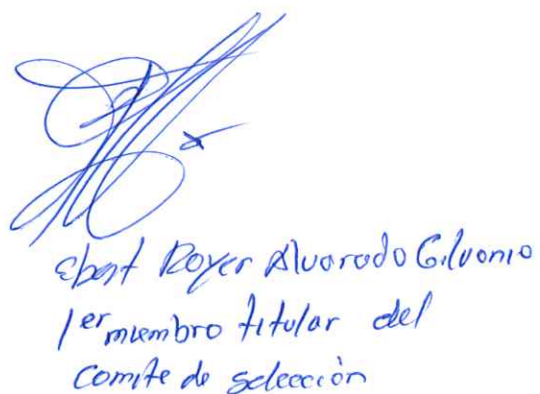 Ebert Royer Alvarado Gilvonio
1er miembro titular del
Comite de selección